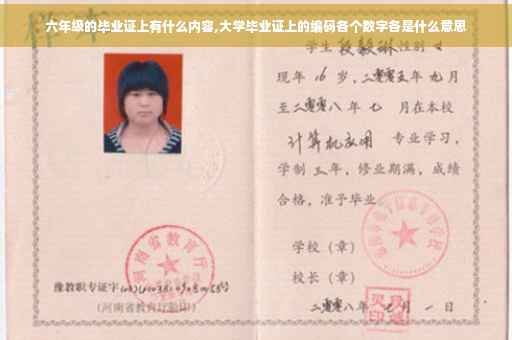 六年级的毕业证上有什么内容,大学毕业证上的编码各个数字各是什么意思
学生 段毅琳 性别 女
现年 16 岁,二零零五年 九月
至二零零八年 七 月在本校
计算机应用 专业学习,
学制 三 年,修业期满,成绩
合格,准予毕业
学校(章)
校长(章)
二零零八年 月 一 日
河南省教育厅
豫教职专证字
(河南省教育厅验印)